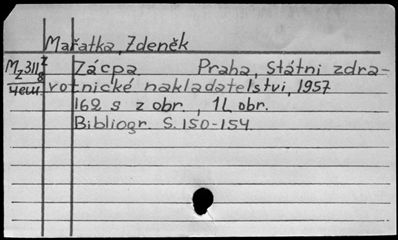 Mařatka, Zdeněk
Zácpa. Praha, Státni zdra-
votnické nakladatelstvi, 1957
162 s z obr., 1L obr.
Bibliogr. S. 150-154.
чеш.